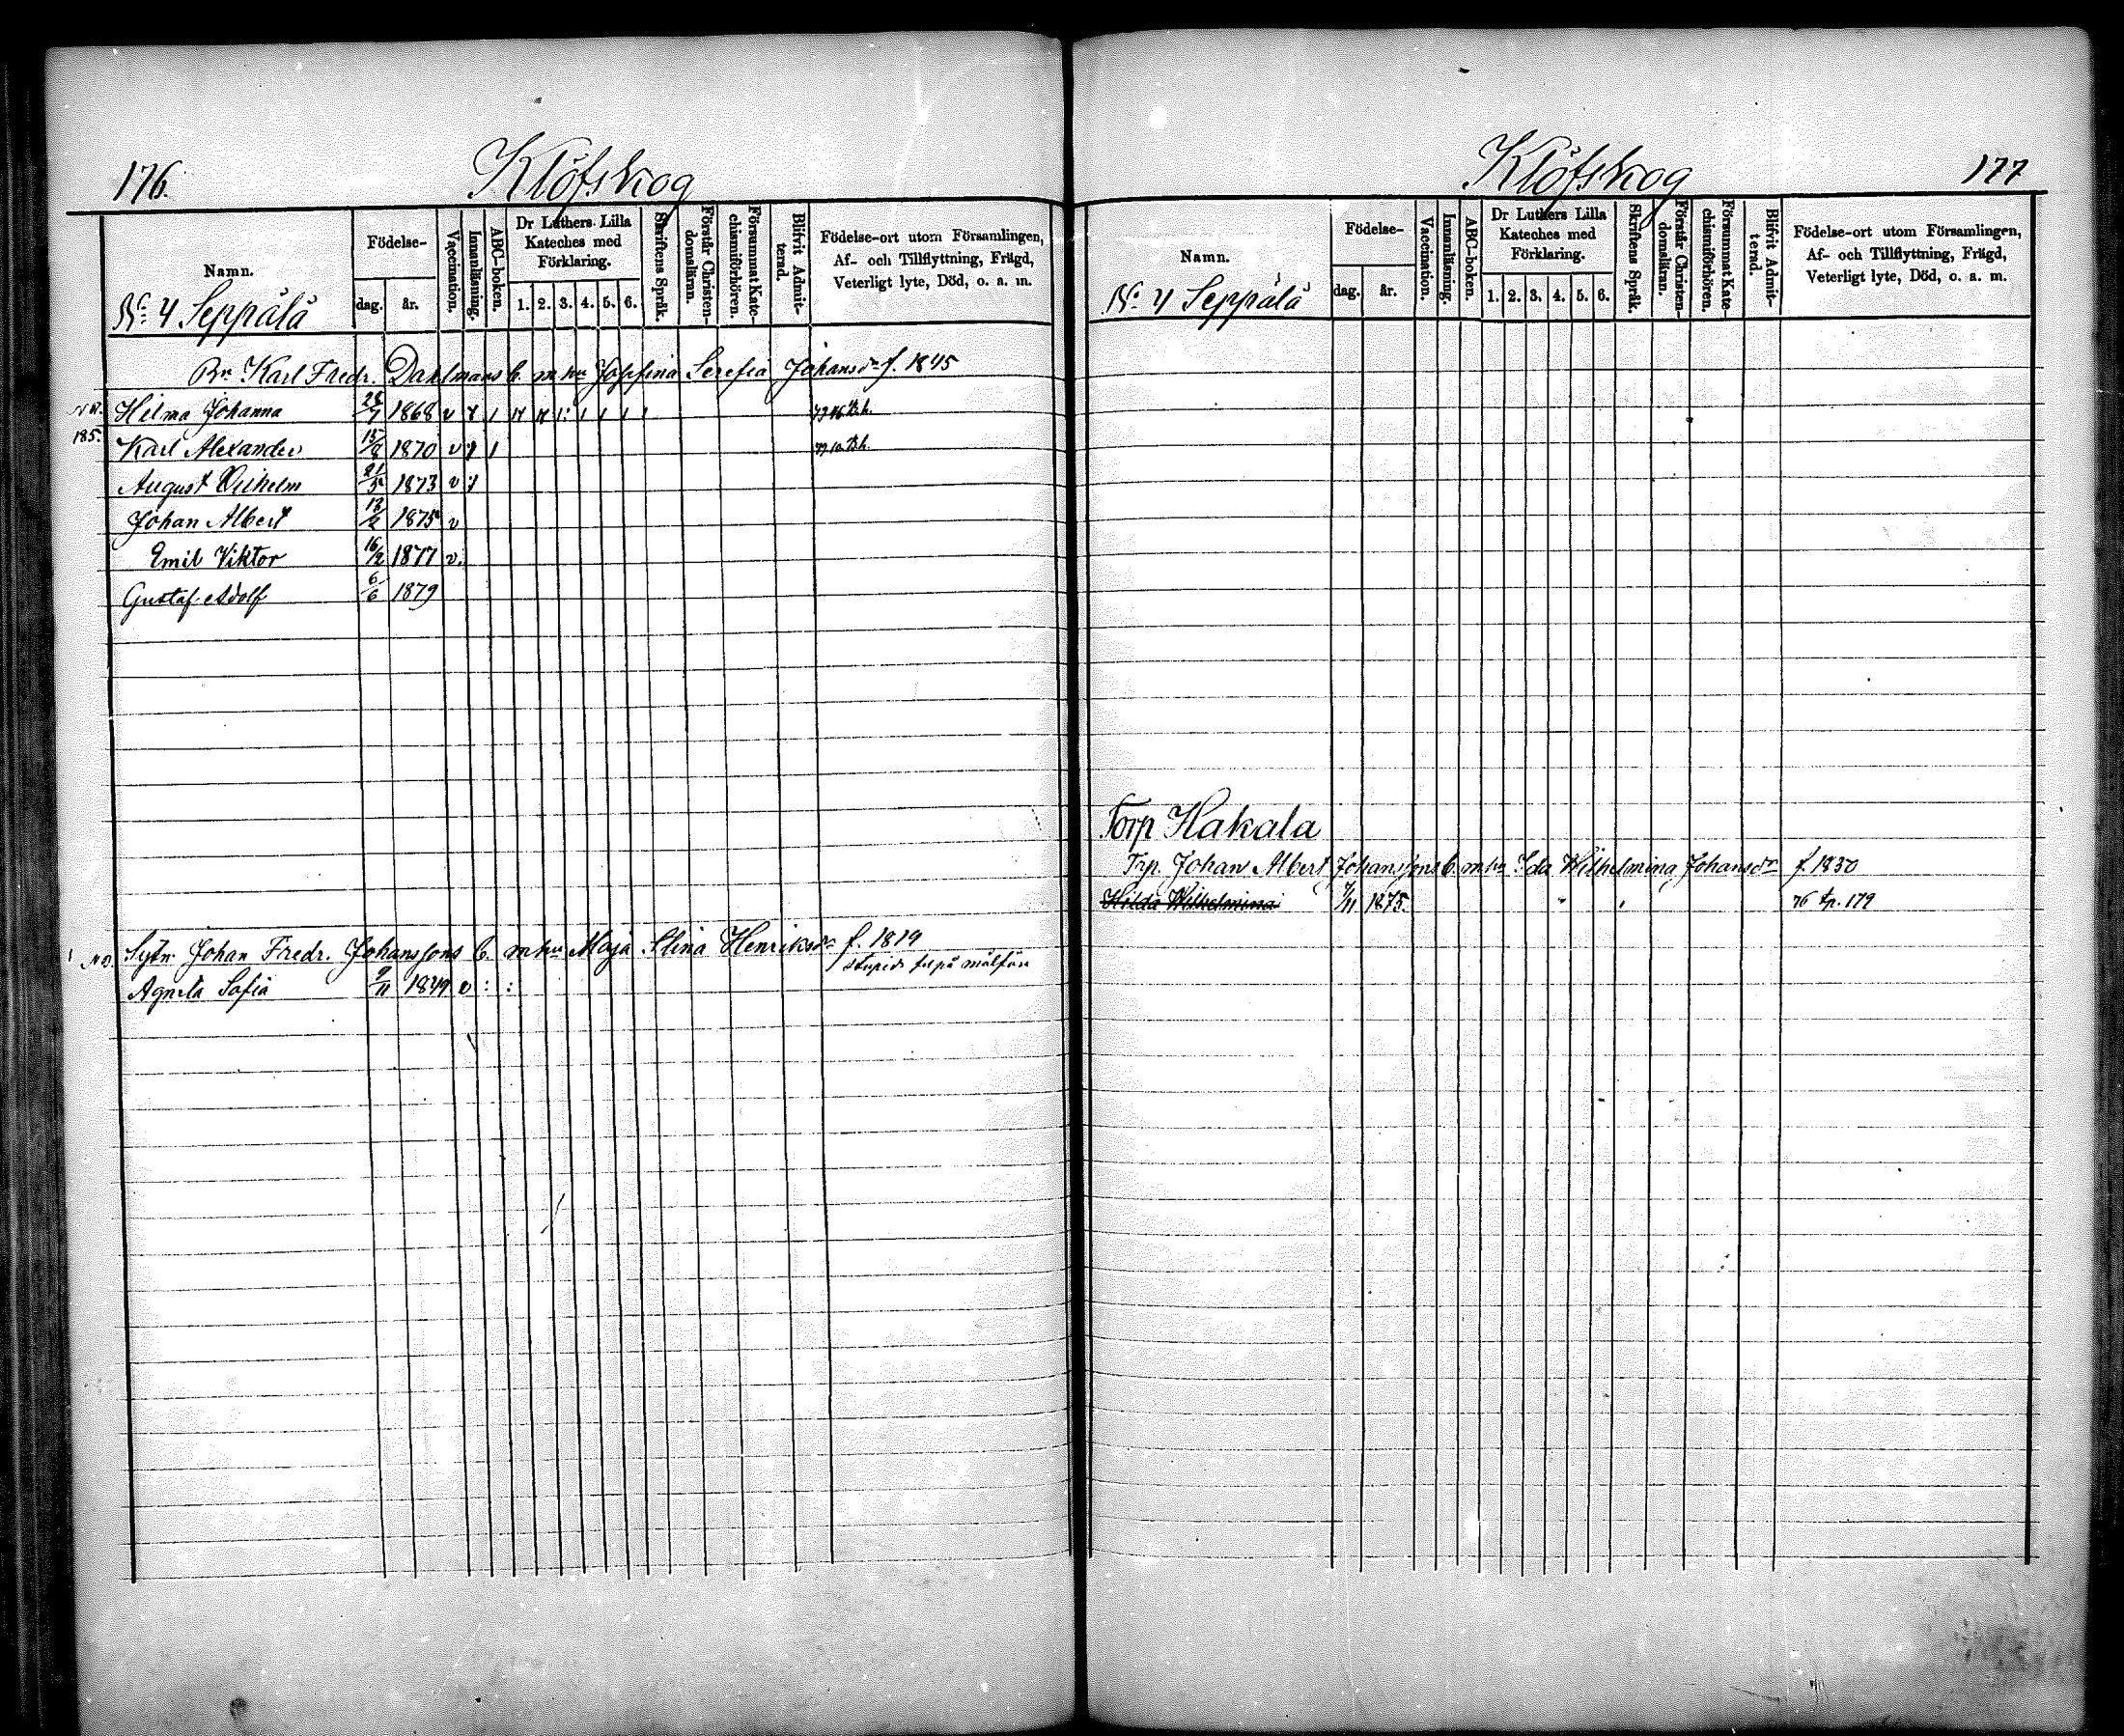 176.
Klöfskog
Namn.
Födelse-
dag.
år.
Vaccination.
Innanläsning.
ABC-boken.
Dr Luthers Lilla
Kateches med
Förklaring.
1. 2. 3. 4. 5. 6.
Skriftens Språk.
Förstår Christen-
domsläran.
Försummat Kate-
chismiförhören.
Blifvit Admit-
terad.
Födelse-ort utom Församlingen,
Af- och Tillflyttning, Frägd,
Veterligt lyte, Död, o. a. m.
No: 4 Seppälä
Bn Karl Fredr. Dahlmans b. m. hu Josefina Serefia Johansdr f. 1845
Hilma Johanna 28/7 1868 v
185. Karl Alexander 15/8 1870 v
August Vilhelm 21/5 1873 v
Johan Albert 13/2 1875 v
Emil Viktor 16/2 1877 v.
Gustaf Adolf 6/6 1879
Sytn. Johan Fredr. Johanssons b. m hu Maja Stina Henriksdr f. 1819
Agneta Sofia 9/11 1849 v : :
Klöfskog
177
Namn.
Födelse-
dag.
år.
Vaccination.
Innanläsning.
ABC-boken.
Dr Luthers Lilla
Kateches med
Förklaring.
1. 2. 3. 4. 5. 6.
Skriftens Språk.
Förstår Christen-
domsläran.
Försummat Kate-
chismiförhören.
Blifvit Admit-
terad.
Födelse-ort utom Församlingen,
Af- och Tillflyttning, Frägd,
Veterligt lyte, Död, o. a. m.
No: 4 Seppälä
Torp Hakala
Trp. Johan Albert Johanssons b. m hu Ida Wilhelmina Johansdr f. 1850
Hilda Wilhelmina 1875. 76 tp. 179